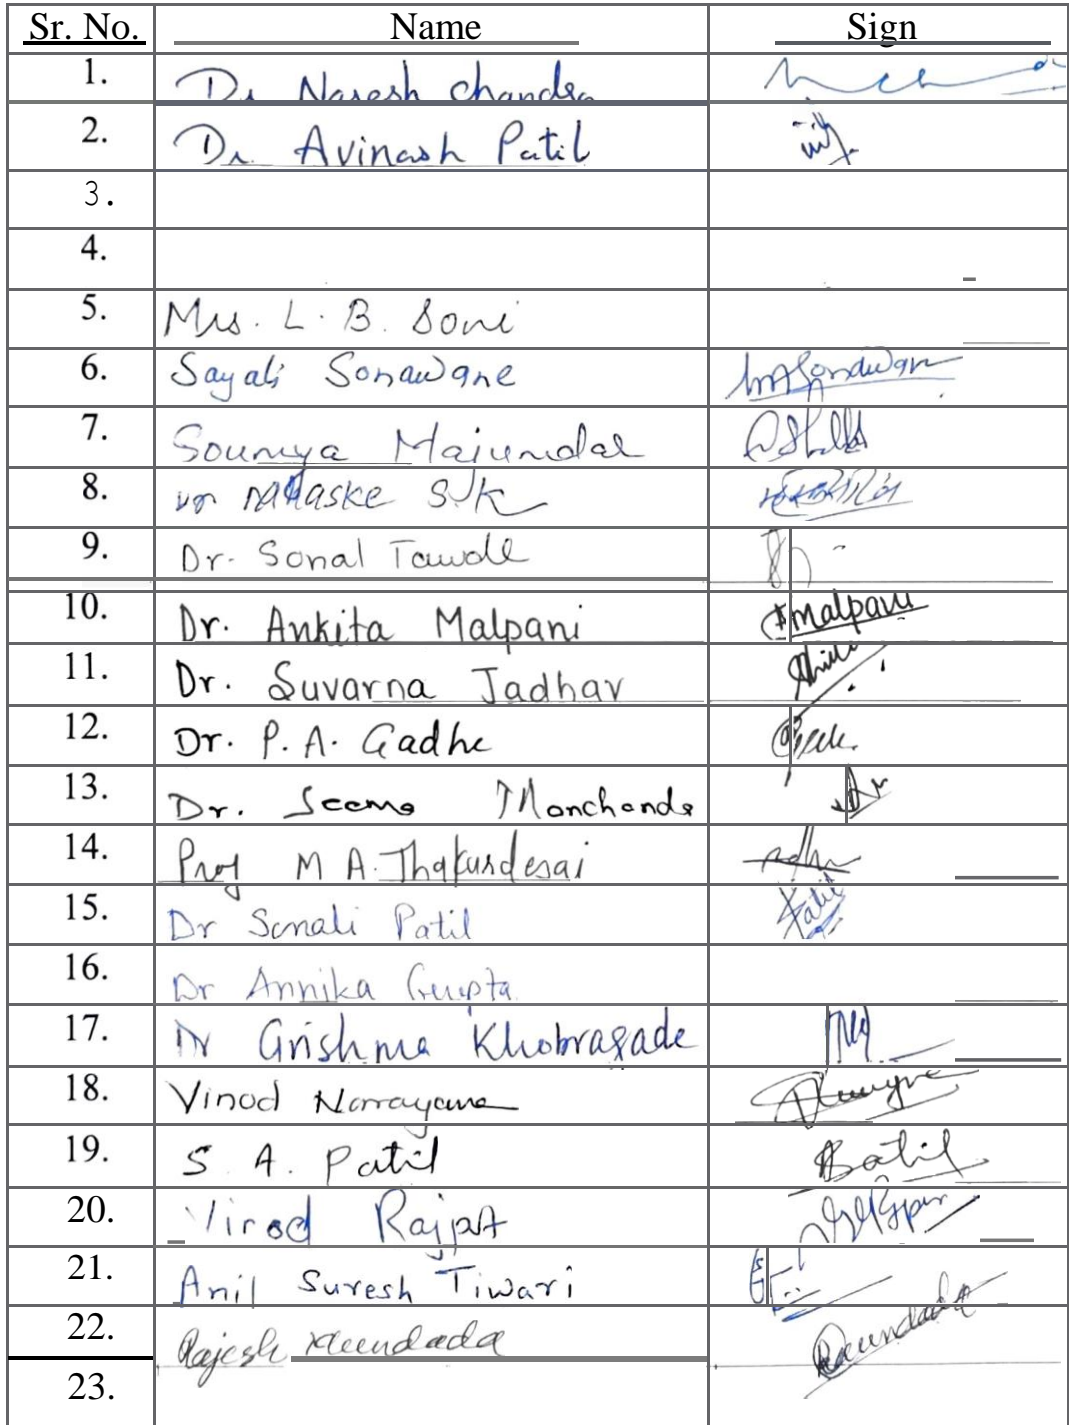 Sr. No. Name Sign
1. Dr Naresh Chandra
2. Dr. Avinash Patil
3.
4.
5. Mrs. L. B. Soni
6. Sayali Sonawane
7. Soumya Majumdar
8. S.K
9. Dr. Sonal Tawde
10. Dr. Ankita Malpani Malpani
11. Dr. Suvarna Jadhav
12. Dr. P. A. Gadhe
13. Dr. Seema Manchanda
14. Prof M A. Thakurdesai
15. Dr Sonali Patil Patil
16. Dr Annika Gupta
17. Dr Grishma Khobragade
18. Vinod Narayane
19. S. A. Patil
20. Vinod Rajput
21. Anil Suresh Tiwari
22. Rajesh
23.